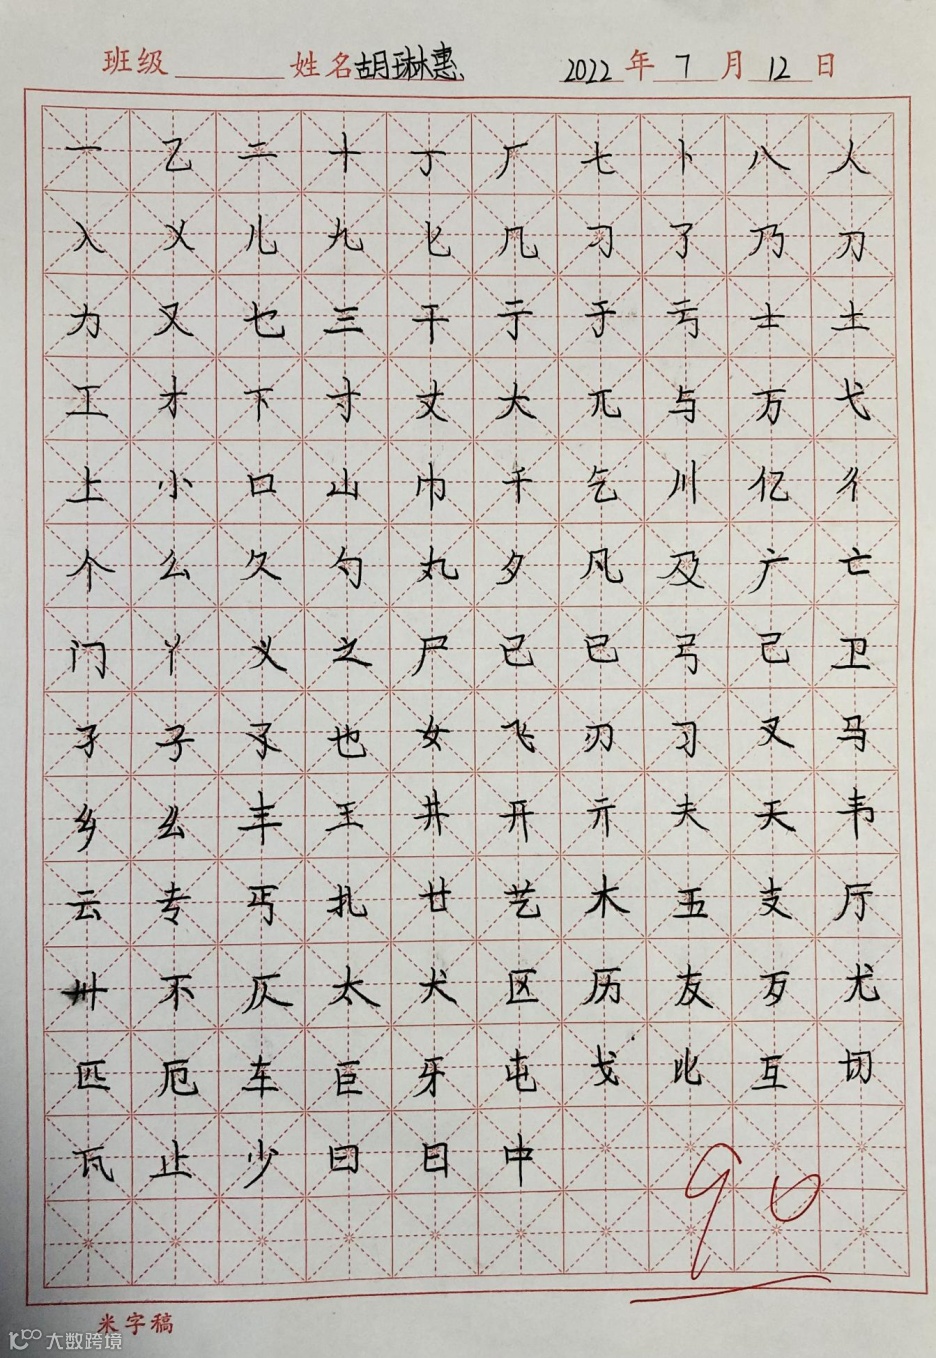 班级 姓名胡琳惠 2022年7月12日
一乙二十丁厂七卜八人
入乂儿九匕几刁了乃刀
力又乜三干亍于亏士土
工才下寸丈大兀与万弋
上小口山巾千乞川亿彳
个么久勺丸夕凡及广亡
门丫义之尸已巳弓己卫
孑子孓也女飞刃习叉马
乡幺丰王井开亓夫天韦
云专丐扎廿艺木五支厅
卅不仄太犬区历友歹尤
匹厄车巨牙屯戈比互切
瓦止少曰日中
90
米字稿
大数跨境